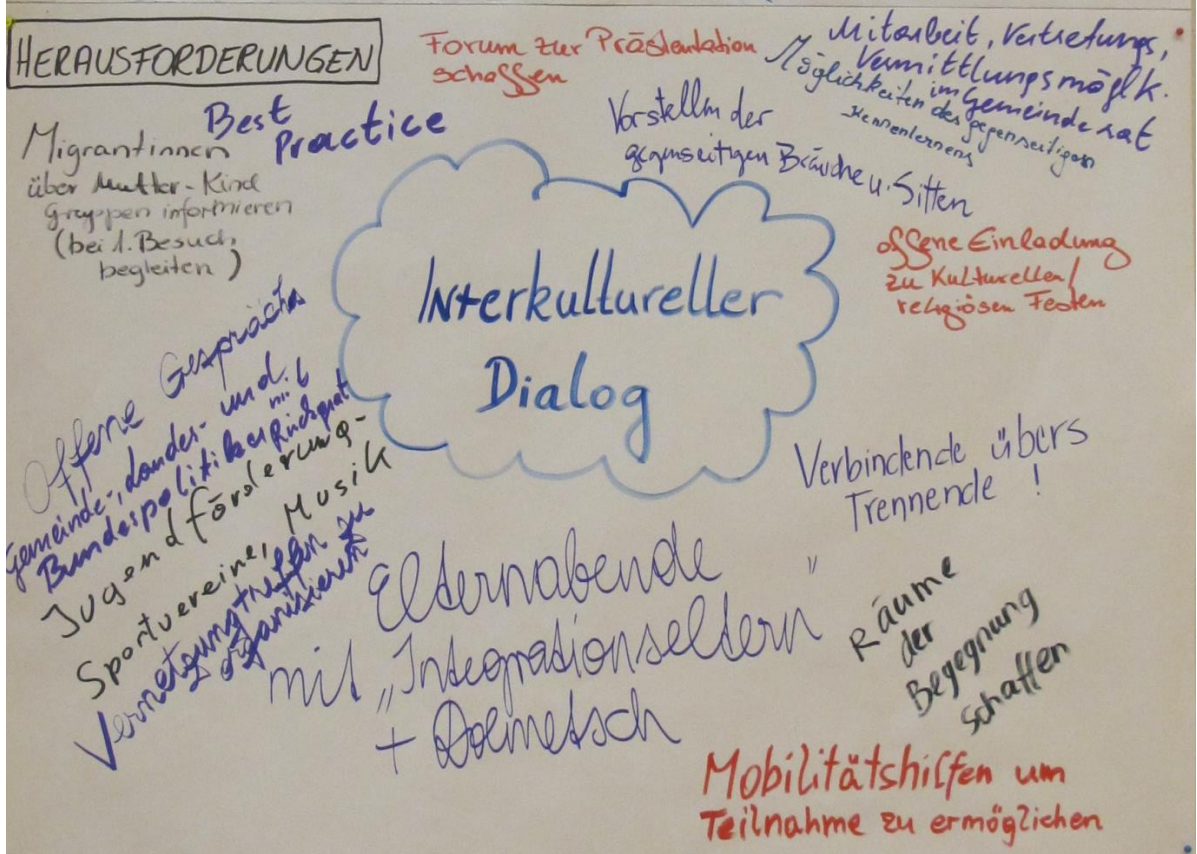 HERAUSFORDERUNGEN
Forum zur Präsentation
schaffen
Mitarbeit, Vertretungs,
Vermittlungsmöglk.
im Gemeinderat
Möglichkeiten des gegenseitigen
Kennenlernens
Best
Practice
Migrantinnen
über Mutter-Kind
Gruppen informieren
(bei 1. Besuch,
begleiten)
Vorstellen der
gegenseitigen Bräuche u. Sitten
offene Einladung
zu Kulturellen/
religiösen Festen
Interkultureller
Dialog
Offene Gespräche
Gemeinde-, Landes- und
Bundespolitiker mit
Rückgrat
Jugendförderung-
Sportvereine, Musik
Vernetzungtreffen zu
organisieren
Verbindende übers
Trennende !
Elternabende
mit „Integrationseltern"
+ Dolmetsch
Räume
der
Begegnung
schaffen
Mobilitätshilfen um
Teilnahme zu ermöglichen